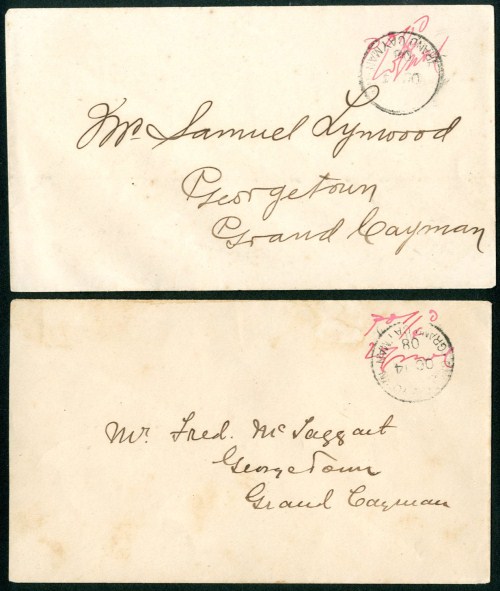 GRAND CAYMAN
OC
Mr. Samuel Lynwood
Georgetown
Grand Cayman
GRAND CAYMAN
08
OC 14
Mr. Fred. McTaggart
Georgetown
Grand Cayman